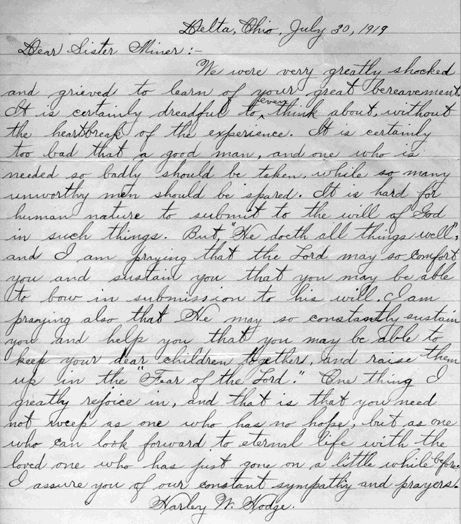 Delta, Ohio, July 30, 1919
Dear Sister Miner:-
We were very greatly shocked
and grieved to learn of your great bereavement.
It is certainly dreadful to even think about, without
the heartbreak of the experience. It is certainly
too bad that a good man, and one who is
needed so badly should be taken, while so many
unworthy men should be spared. It is hard for
human nature to submit to the will of God
in such things. But, "He doeth all things well",
and I am praying that the Lord may so comfort
you and sustain you that you may be able
to bow in submission to his will. I am
praying also that He may so constantly sustain
you and help you that you may be able to
keep your dear children together, and raise them
up in the "Fear of the Lord." One thing I
greatly rejoice in, and that is that you need
not weep as one who has no hope, but as one
who can look forward to eternal life with the
loved one who has just gone on a little while before.
I assure you of our constant sympathy and prayers.
Harley W. Hodge.